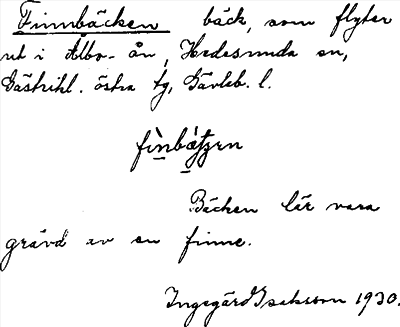 Finnbäcken bäck, som flyter
ut i Älbo-ån, Hedesunda sn,
Gästrikl. östra tg, Gävleb. l.
Bäcken lär vara
grävd av en finne.
Ingegärd Isaksson 1930.